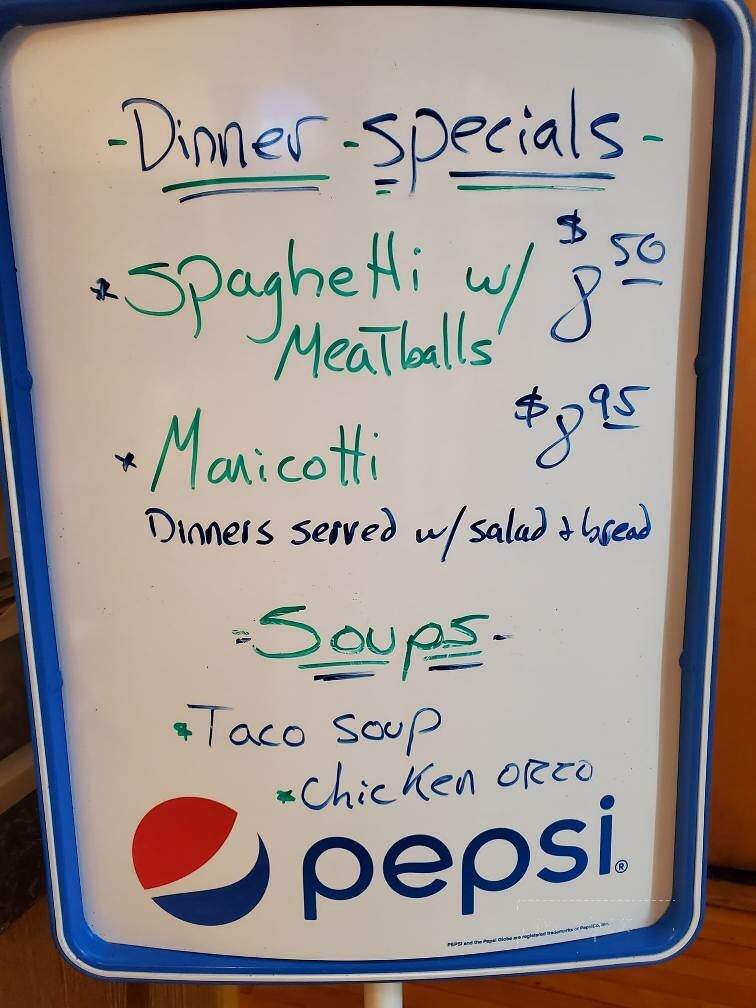 -Dinner -specials-
*Spaghetti w/ $8 50
Meatballs
*Manicotti $8 95
Dinners served w/ salad + bread
-Soups-
*Taco soup
*Chicken orzo
pepsi®
PEPSI and the Pepsi Globe are registered trademarks of PepsiCo, Inc.